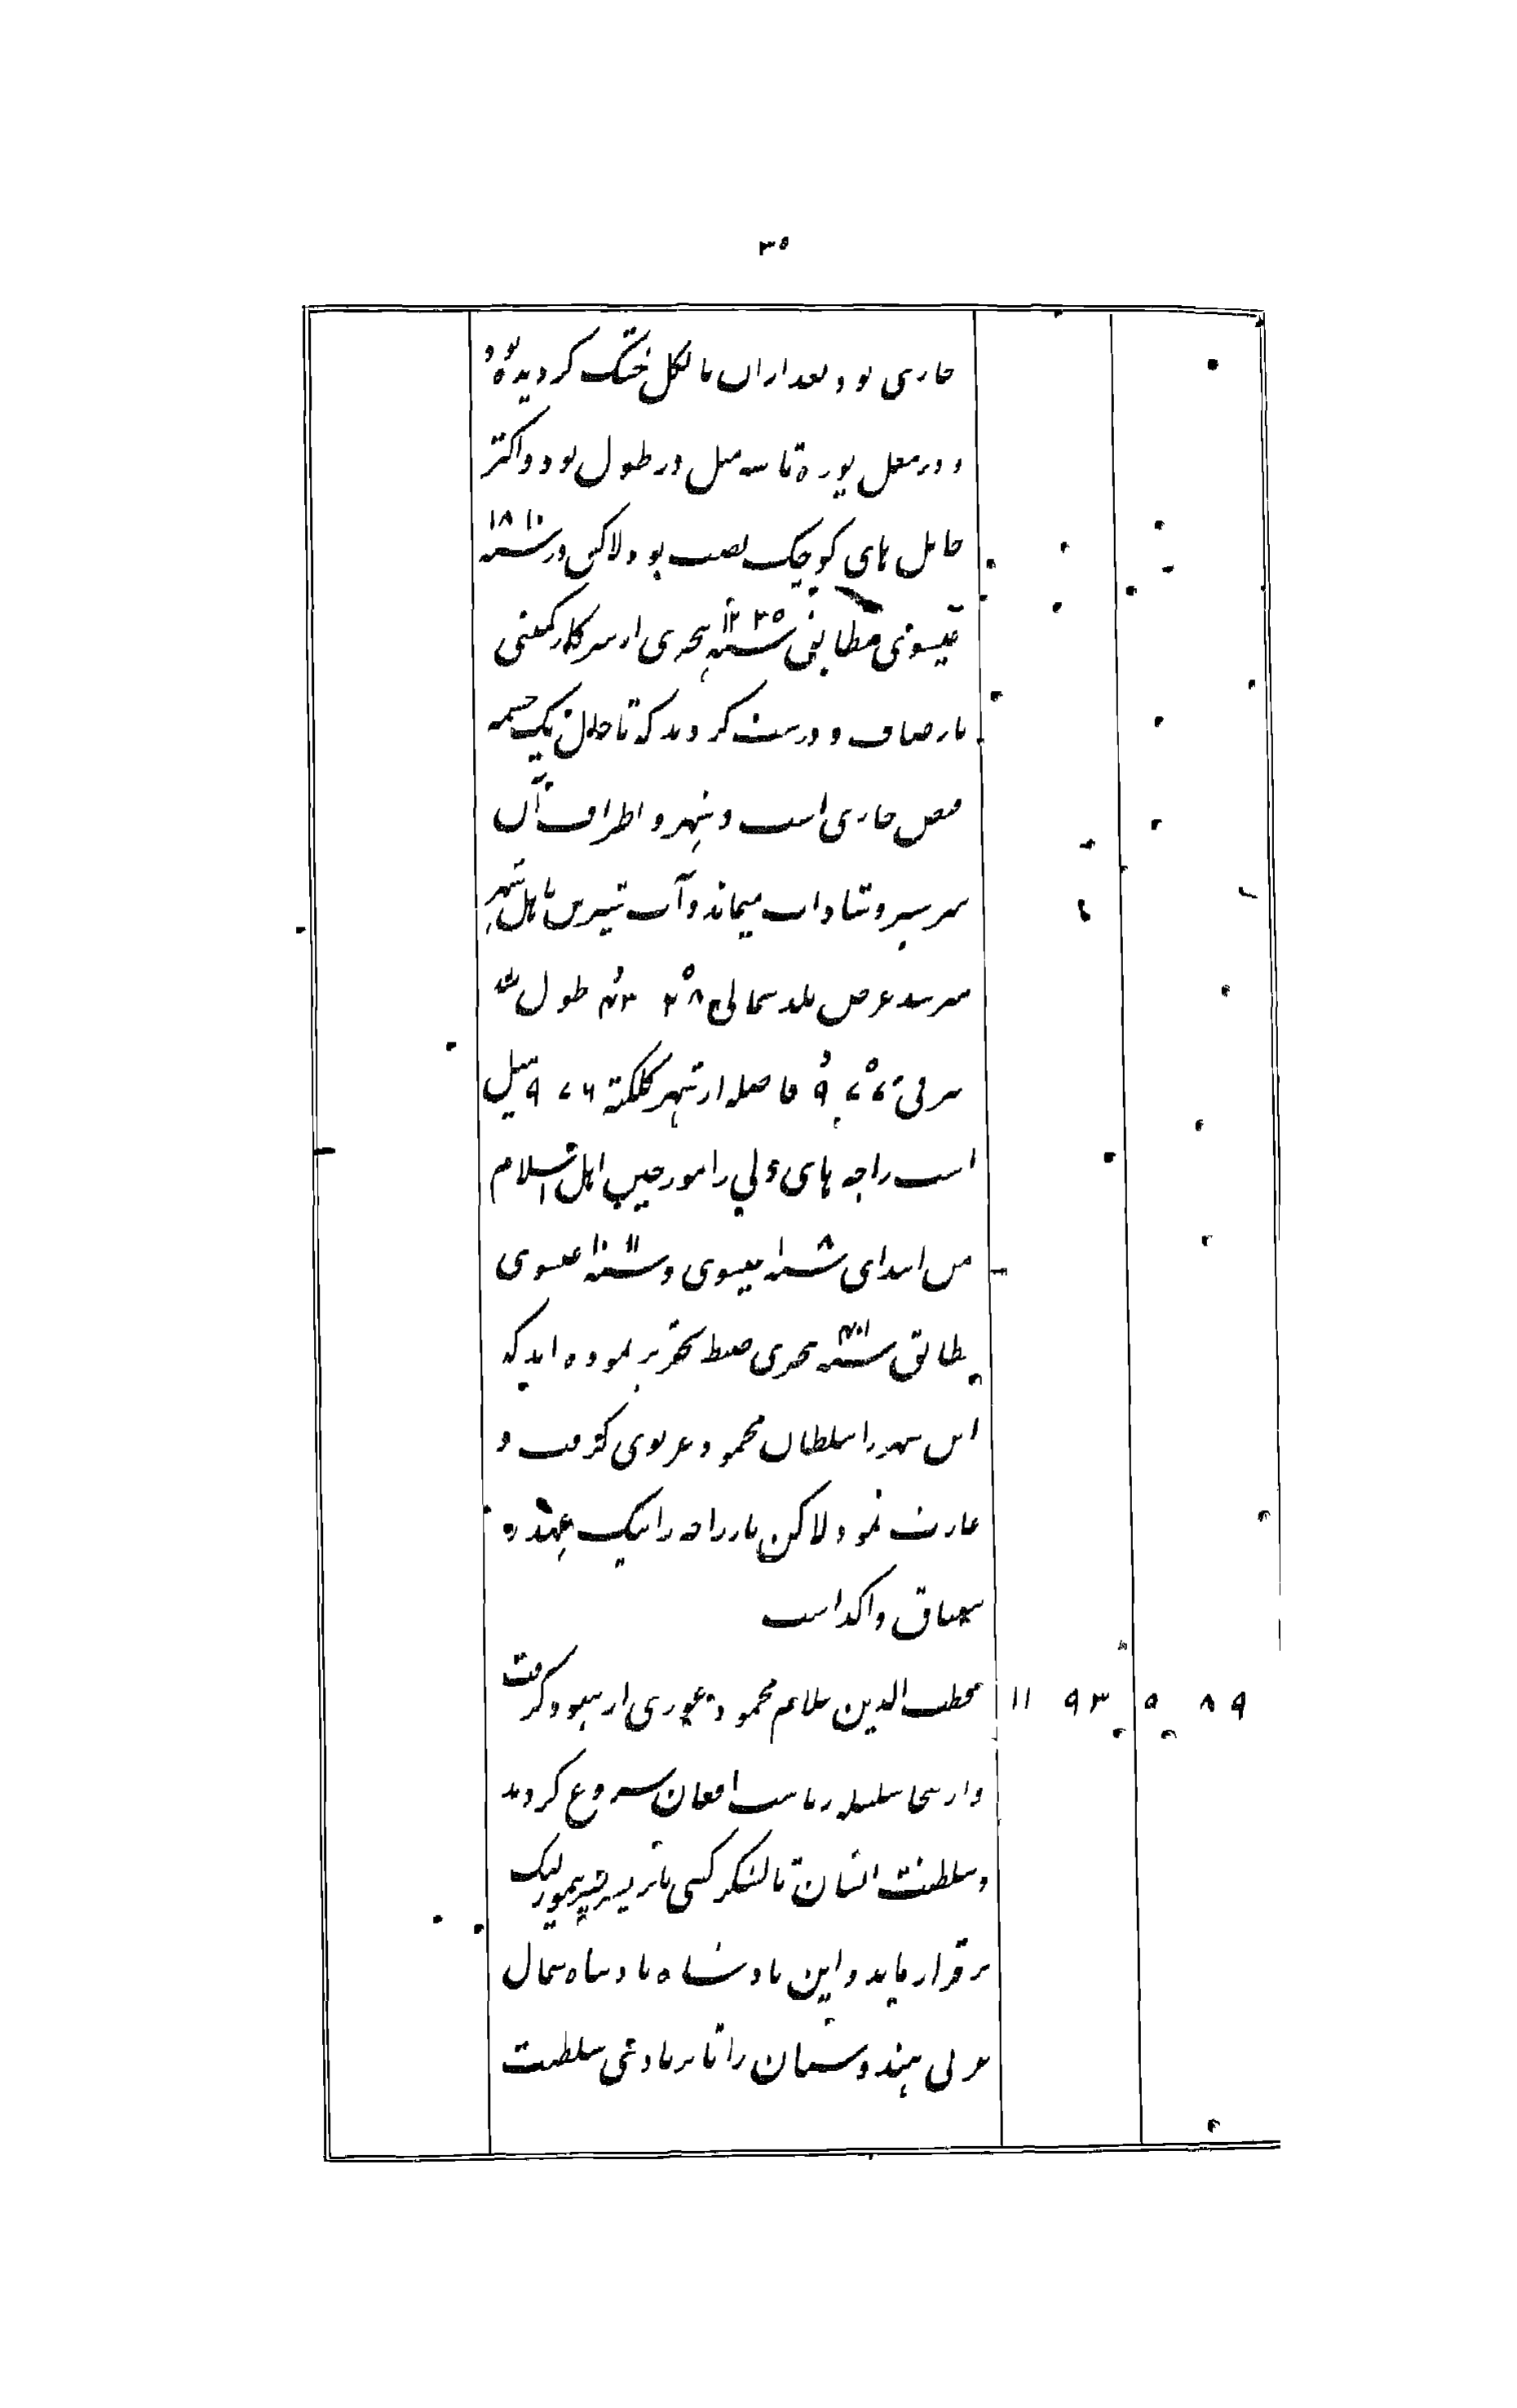 ۳۵
جاری بود و بعد ازان بالکل خشک گردیده بود
و در مغل پوره تا سه میل در طول بود و اکثر
حایل های کوچک نصب بود ولاکن در سنه ۱۸۲۰
عیسوی مطابق سنه ۱۲۳۵ هجری از سرکار کمپنی
باز صاف و درست کردند که تا حال یک چشمه
فیض جاری است و شهر و اطراف آن
سرسبز و شاداب میماند و آب شیرین باهل شهر
میرسد عرض بلد شمالی ۲۸ طول بلد
شرقی ۷۷ ۹ فاصله از شهر کلکته ۹۷۶ میل
است راجه های دلی را مورخین اهل اسلام
من ابتدای سنه ۸ عیسوی و سنه ۱۰۱۱ عیسوی
بطابق سنه هجری ضبط تحریر نموده اند که
این شهر را سلطان محمود غزنوی گرفت و
غارت نمود لاکن باز راجه را بیک عهده
میثاق واگذاشت
۵۸۹ ۱۱۹۳ قطب الدین غلام محمود غوری از هنود گرفت
و ازینجا سلسله ریاست افغان شروع کردند
و سلطنت ایشان تا لشکر کشی تیمور لنگ
برقرار ماند و این بادشاه بادشاه شمال
غربی هندوستان را تا بربادی سلطنت